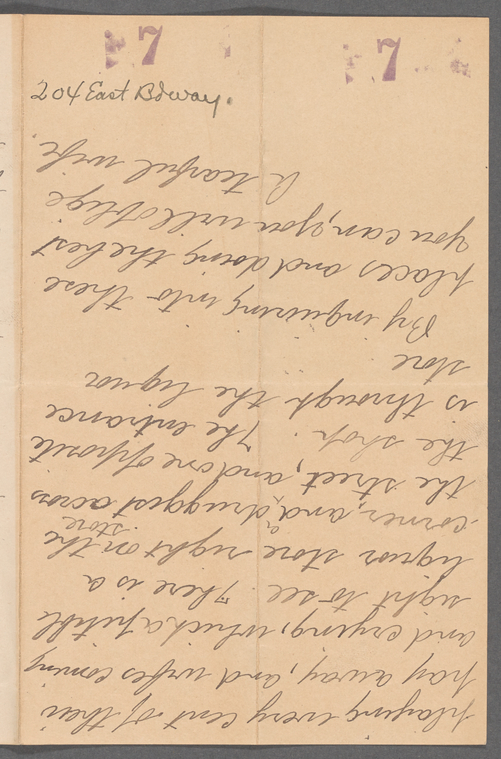 7 7
204 East Bdway.
playing every cent of their
pay away, and wifes coming
and crying, which a pitible
sight to see. There is a
liquor store right on the
corner, and a druggist store across
the street, and one opposite
the shop. The entrance
is through the liquor
store
By inquiring into these
places and doing the best
you can, you will oblige
A tearful wife.